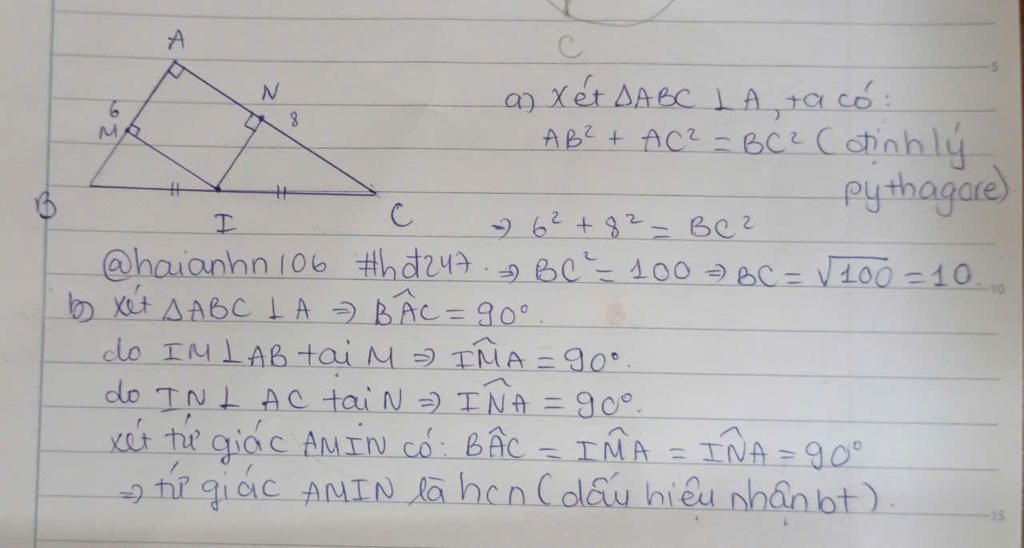 C
A
N
6
8
M
B
I
C
a) Xét ΔABC ⊥ A, ta có:
AB² + AC² = BC² (định lý
pythagore)
⇒ 6² + 8² = BC²
@haianhn106 #hđ247. ⇒ BC² = 100 ⇒ BC = √100 = 10.
b) xét ΔABC ⊥ A ⇒ BÂC = 90°.
do IM ⊥ AB tại M ⇒ IM̂A = 90°.
do IN ⊥ AC tại N ⇒ IN̂A = 90°.
xét tứ giác AMIN có: BÂC = IM̂A = IN̂A = 90°
⇒ tứ giác AMIN là hcn (dấu hiệu nhận bt).
5
10
15